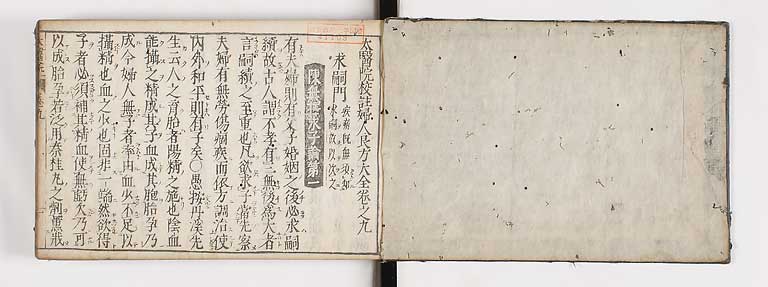 太醫院校註婦人良方大全卷之九
求嗣門
疾病既無須知
求嗣故以次之
陳無擇求子論第一
有夫婦則有父子婚姻之後必求嗣
續故古人謂不孝有三無後為大者
言嗣續之至重也凡欲求子當先察
夫婦有無勞傷痼疾而依方調治使
內外和平則有子矣○愚按丹溪先
生云人之育胎者陽精之施也陰血
能攝之精成其子血成其胞胎孕乃
成今婦人無子者率由血少不足以
攝精也血之少也固非一端然欲得
子者必須補其精血使無虧欠乃可
以成胎孕若泛用秦桂丸之劑熏戕